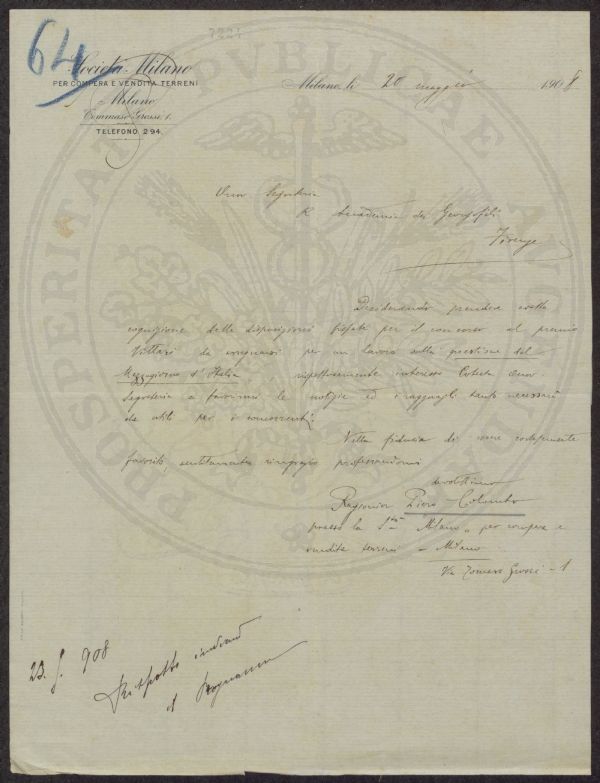 64
7221
Società Milano
PER COMPERA E VENDITA TERRENI
Milano
Tommaso Grossi, 1.
TELEFONO 294
Milano, li 20 maggio 1908
Onor. Segreteria
R. Accademia dei Georgofili
Firenze
Desiderando prendere esatta
cognizione delle disposizioni fissate per il concorso al premio
Villari da assegnarsi per un lavoro sulla questione del
Mezzogiorno d'Italia, rispettosamente interesso Codesta Onor.
Segreteria a favorirmi le notizie ed i ragguagli tanto necessari
che utili per i concorrenti.
Nella fiducia di essere cortesemente
favorito, sentitamente ringrazio professandomi
devotissimo
Ragionier Piero Colombo
presso la S.tà Milano, per compera e
vendita terreni - Milano
Via Tommaso Grossi - 1
23. 908
Risposto
PROSPERITATI PVBLICAE AVGENDAE